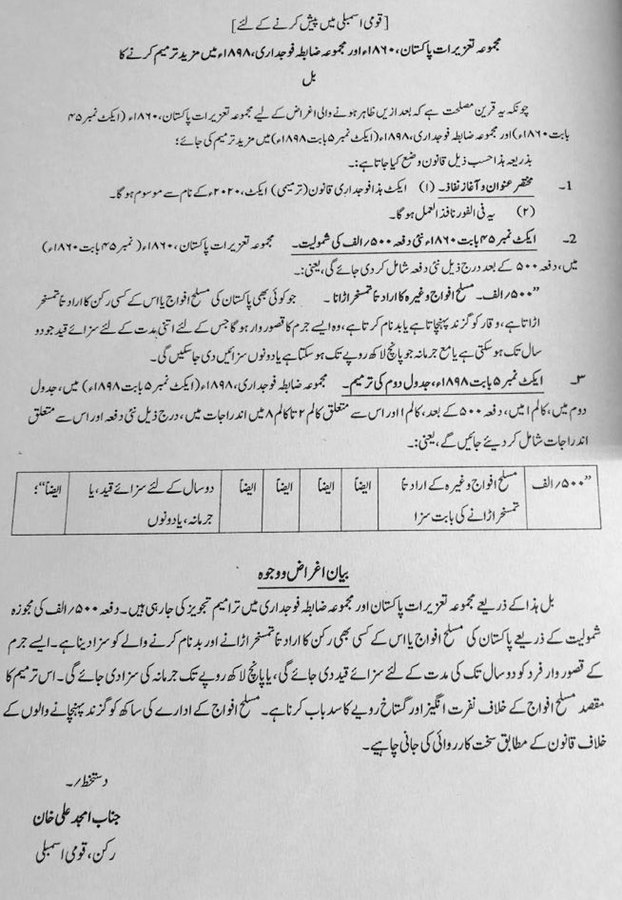 [قومی اسمبلی میں پیش کرنے کے لئے]
مجموعہ تعزیرات پاکستان، ۱۸۶۰ء اور مجموعہ ضابطہ فوجداری، ۱۸۹۸ء میں مزید ترمیم کرنے کا
بل
چونکہ یہ قرین مصلحت ہے کہ بعد ازیں ظاہر ہونے والی اغراض کے لیے مجموعہ تعزیرات پاکستان، ۱۸۶۰ء (ایکٹ نمبر ۴۵
بابت ۱۸۶۰ء) اور مجموعہ ضابطہ فوجداری، ۱۸۹۸ء (ایکٹ نمبر ۵ بابت ۱۸۹۸ء) میں مزید ترمیم کی جائے؛
بذریعہ ہذا حسب ذیل قانون وضع کیا جاتا ہے:۔
1۔ مختصر عنوان و آغاز نفاذ۔ (۱) ایکٹ ہذا فوجداری قانون (ترمیمی) ایکٹ، ۲۰۲۰ء کے نام سے موسوم ہوگا۔
(۲) یہ فی الفور نافذ العمل ہوگا۔
2۔ ایکٹ نمبر ۴۵ بابت ۱۸۶۰ء نئی دفعہ ۵۰۰؍الف کی شمولیت۔ مجموعہ تعزیرات پاکستان، ۱۸۶۰ء (نمبر ۴۵ بابت ۱۸۶۰ء)
میں، دفعہ ۵۰۰ کے بعد درج ذیل نئی دفعہ شامل کر دی جائے گی، یعنی:۔
”۵۰۰؍الف۔ مسلح افواج وغیرہ کا ارادتاً تمسخر اڑانا۔ جو کوئی بھی پاکستان کی مسلح افواج یا اس کے کسی رکن کا ارادتاً تمسخر
اڑاتا ہے، وقار کو گزند پہنچاتا ہے یا بدنام کرتا ہے، وہ ایسے جرم کا قصوروار ہوگا جس کے لئے اتنی مدت کے لئے سزائے قید جو دو
سال تک ہو سکتی ہے یا مع جرمانہ جو پانچ لاکھ روپے تک ہو سکتا ہے یا دونوں سزائیں دی جا سکیں گی۔
۳۔ ایکٹ نمبر ۵ بابت ۱۸۹۸ء، جدول دوم کی ترمیم۔ مجموعہ ضابطہ فوجداری، ۱۸۹۸ء (ایکٹ نمبر ۵ بابت ۱۸۹۸ء) میں، جدول
دوم میں، کالم ۱ میں، دفعہ ۵۰۰ کے بعد، کالم ۱ اور اس سے متعلق کالم ۲ تا کالم ۸ میں اندراجات میں، درج ذیل نئی دفعہ اور اس سے متعلق
اندراجات شامل کر دیئے جائیں گے، یعنی:۔
”۵۰۰؍الف مسلح افواج وغیرہ کے ارادتاً ایضاً ایضاً ایضاً ایضاً دو سال کے لئے سزائے قید، یا ایضاً“؛
تمسخر اڑانے کی بابت سزا جرمانہ، یا دونوں
بیان اغراض و وجوہ
بل ہذا کے ذریعے مجموعہ تعزیرات پاکستان اور مجموعہ ضابطہ فوجداری میں ترامیم تجویز کی جا رہی ہیں۔ دفعہ ۵۰۰؍الف کی مجوزہ
شمولیت کے ذریعے پاکستان کی مسلح افواج یا اس کے کسی بھی رکن کا ارادتاً تمسخر اڑانے اور بدنام کرنے والے کو سزا دینا ہے۔ ایسے جرم
کے قصوروار فرد کو دو سال تک کی مدت کے لئے سزائے قید دی جائے گی، یا پانچ لاکھ روپے تک جرمانہ کی سزا دی جائے گی۔ اس ترمیم کا
مقصد مسلح افواج کے خلاف نفرت انگیز اور گستاخ رویے کا سدباب کرنا ہے۔ مسلح افواج کے ادارے کی ساکھ کو گزند پہنچانے والوں کے
خلاف قانون کے مطابق سخت کارروائی کی جانی چاہیے۔
دستخط؍۔
جناب امجد علی خان
رکن، قومی اسمبلی